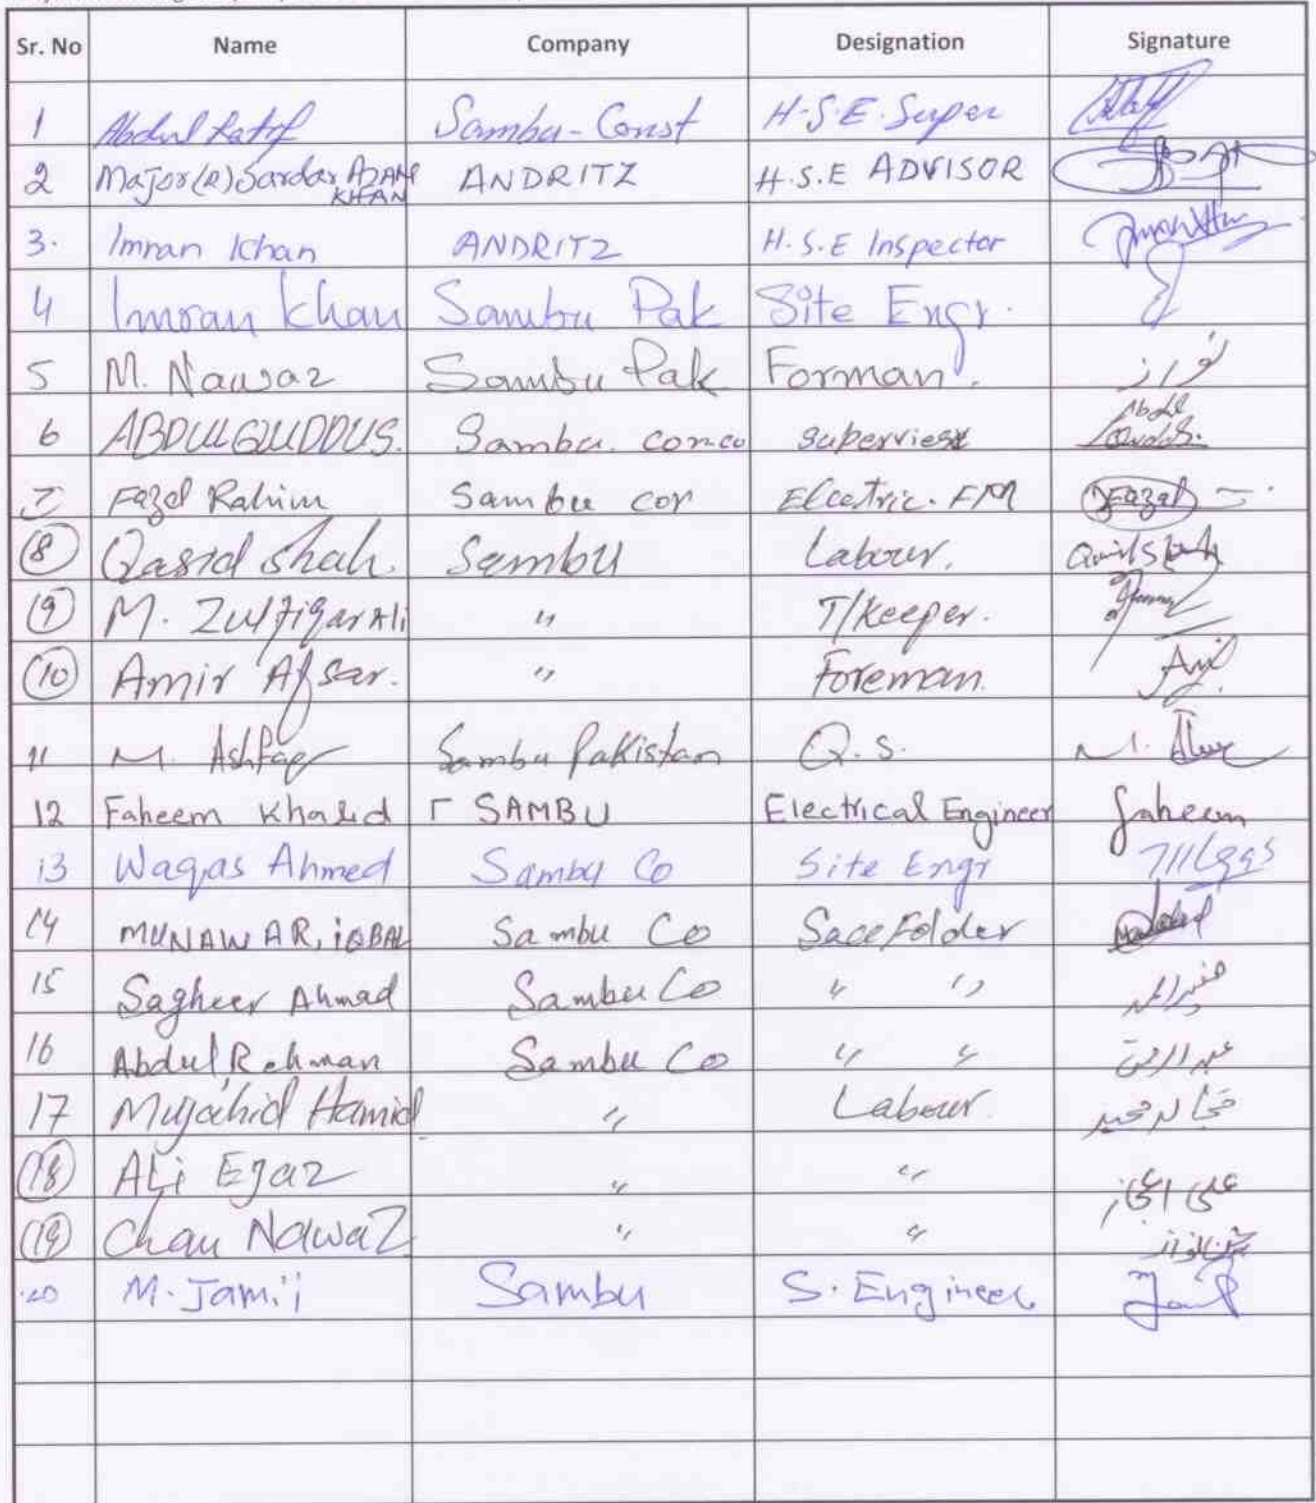 Sr. No Name Company Designation Signature
1 Abdul Latif Sambu-Const H.S.E. Super
2 Major(R) Sardar AZAM KHAN ANDRITZ H.S.E ADVISOR
3. Imran Khan ANDRITZ H.S.E Inspector
4 Imran Khan Sambu Pak Site Engr.
5 M. Nawaz Sambu Pak Forman. نواز
6 ABDUL QUDDUS. Sambu. con.co Abdul Quddus.
7 Fazel Rahim Sambu cor Elcetric. FM Fazal
8 Qasid Shah. Sambu Labour.
9 M. Zulfiqar Ali " T/Keeper.
10 Amir Afsar. " Foreman.
11 M. Ashfaq Sambu Pakistan Q.S.
12 Faheem Khalid SAMBU Electrical Engineer faheem
13 Waqas Ahmed Sambu Co Site Engr
14 MUNAWAR, iQBAL Sambu Co SaceFolder
15 Sagheer Ahmad Sambu Co " " صغیر احمد
16 Abdul Rehman Sambu Co " " عبدالرحمن
17 Mujahid Hamid " Labour.
18 ALi Ejaz " " علی اعجاز
19 Chan NawaZ " "
20 M. Jamil Sambu S. Engineer